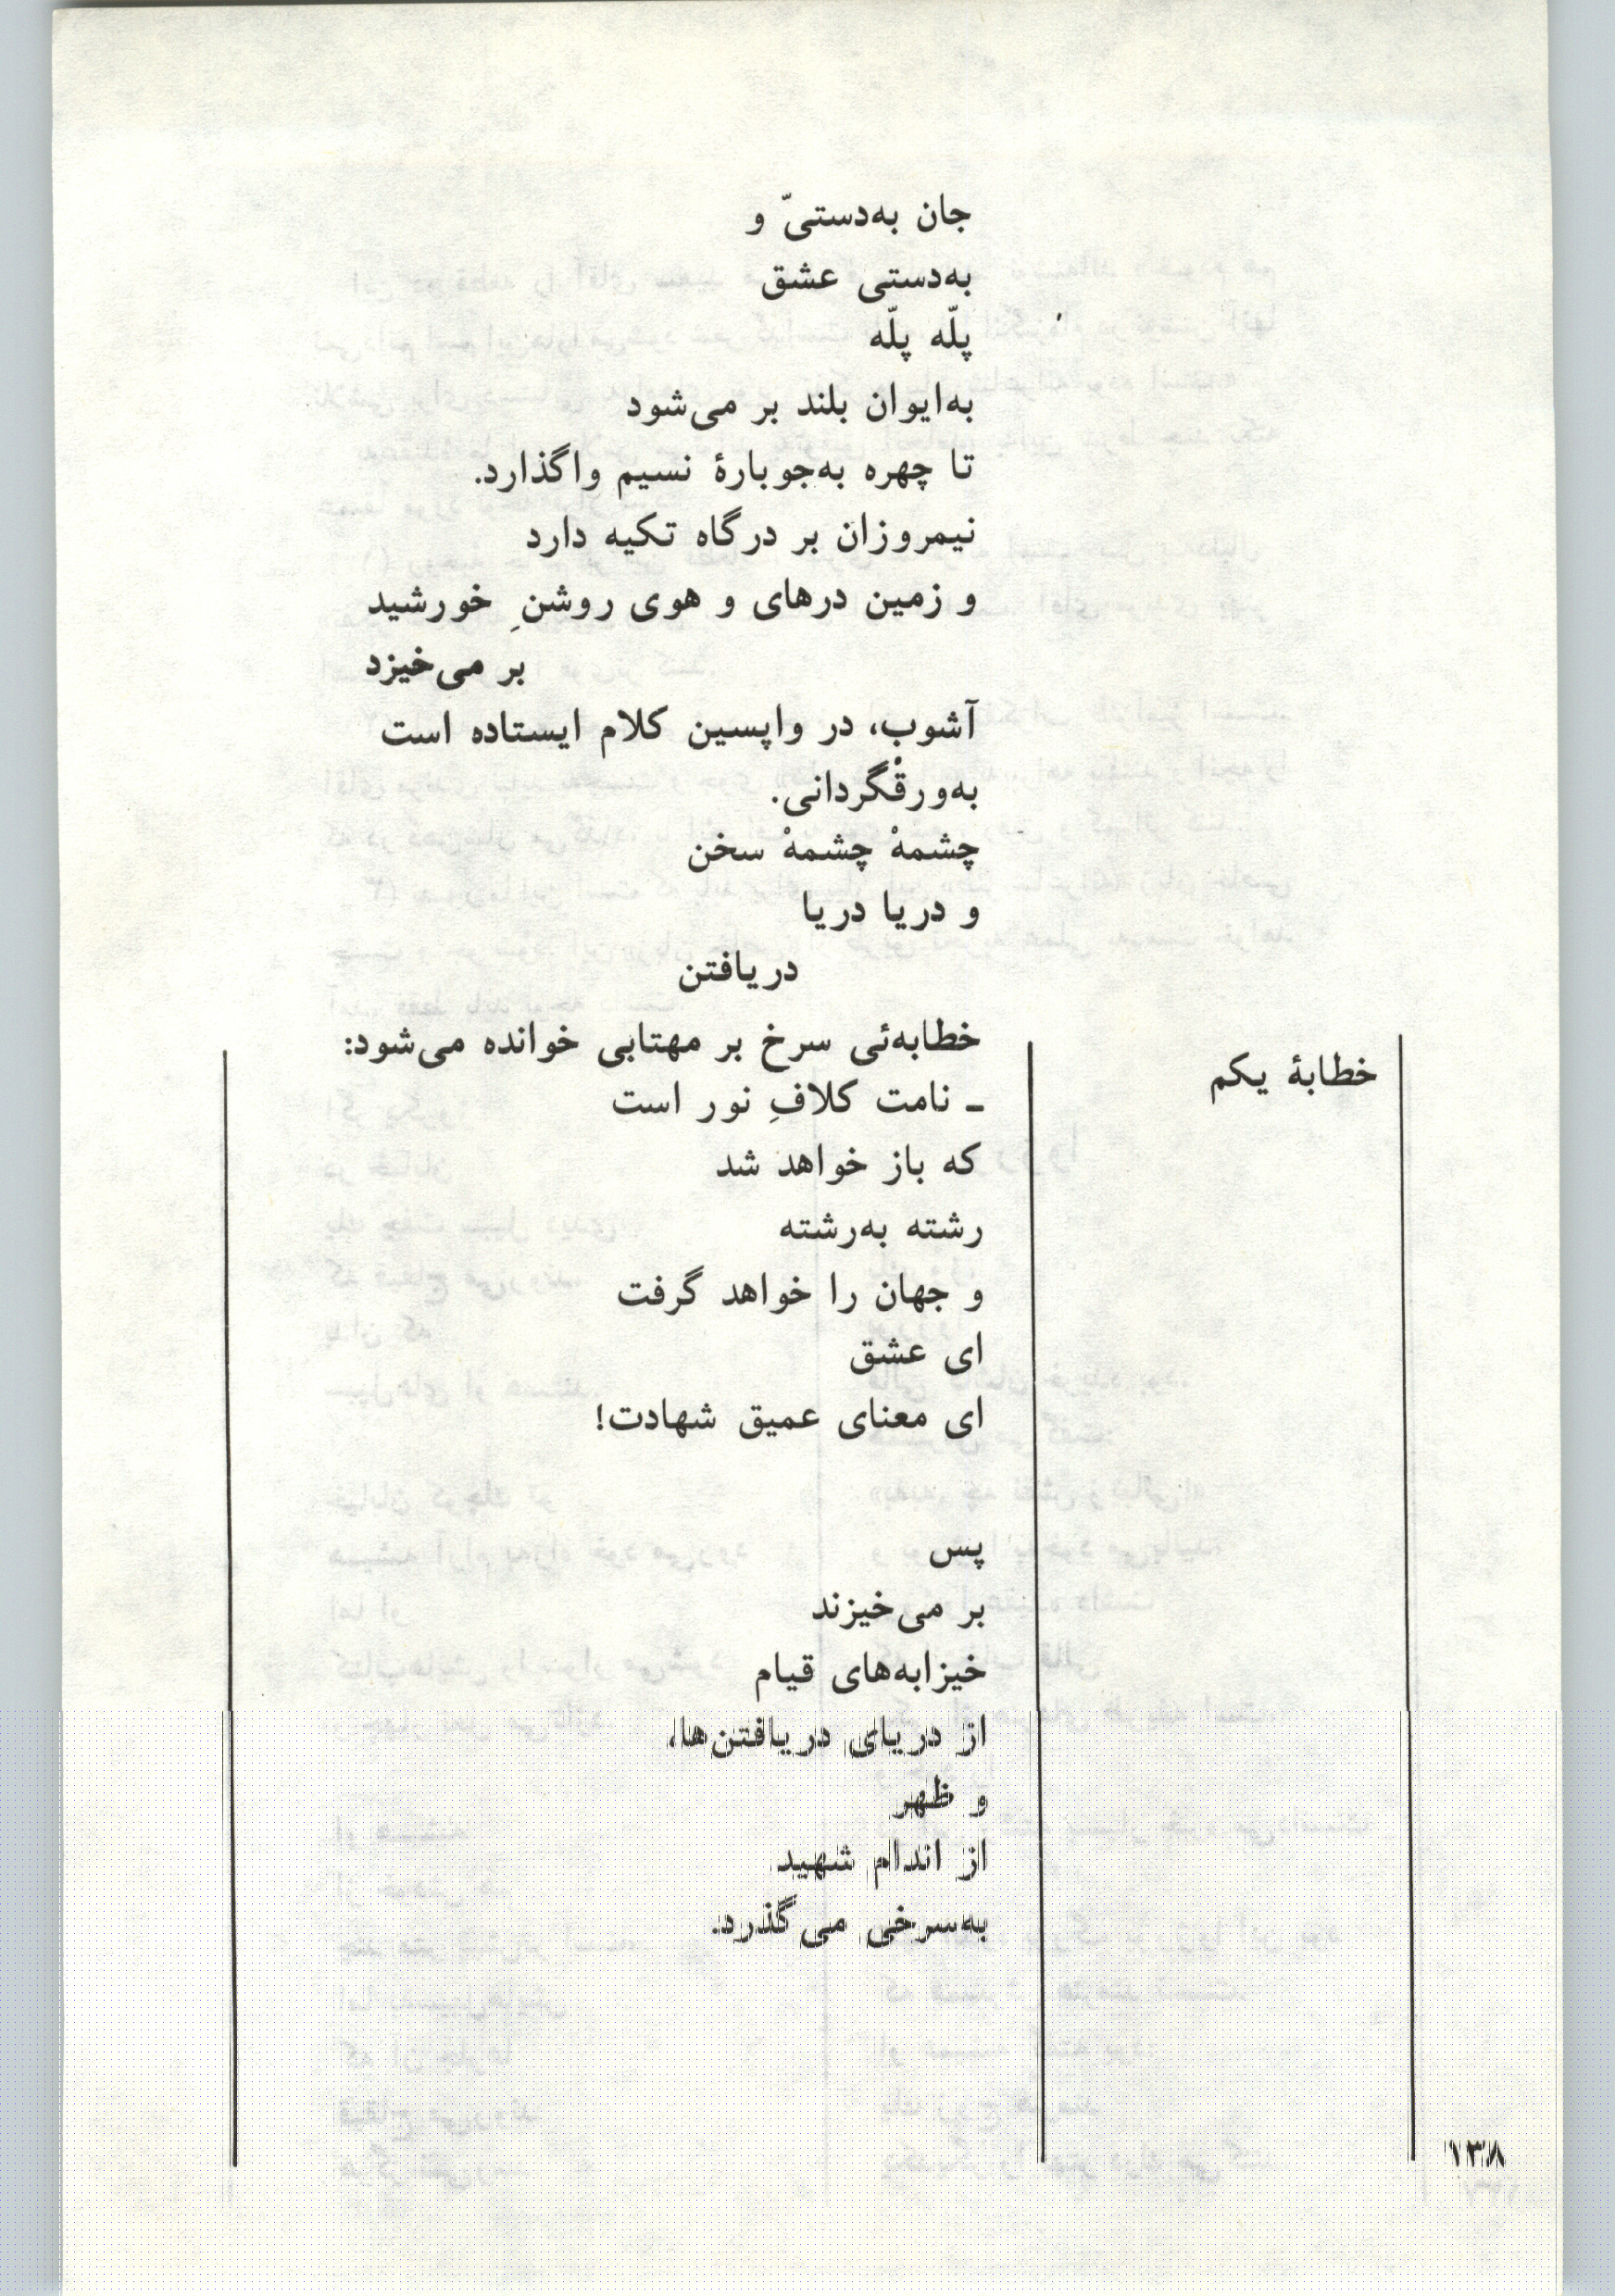 جان به‌دستیّ و
به‌دستی عشق
پلّه پلّه
به‌ایوان بلند بر می‌شود
تا چهره به‌جوبارهٔ نسیم واگذارد.
نیمروزان بر درگاه تکیه دارد
و زمین درهای و هوی روشنِ خورشید
بر می‌خیزد
آشوب، در واپسین کلام ایستاده است
به‌ورقْ‌گردانی.
چشمهْ چشمهْ سخن
و دریا دریا
دریافتن
خطابهٔ یکم
خطابه‌ئی سرخ بر مهتابی خوانده می‌شود:
ـ نامت کلافِ نور است
که باز خواهد شد
رشته به‌رشته
و جهان را خواهد گرفت
ای عشق
ای معنای عمیق شهادت!
پس
بر می‌خیزند
خیزابه‌های قیام
از دریای دریافتن‌ها،
و ظهر
از اندام شهید
به‌سرخی می‌گذرد.
۱۳۸